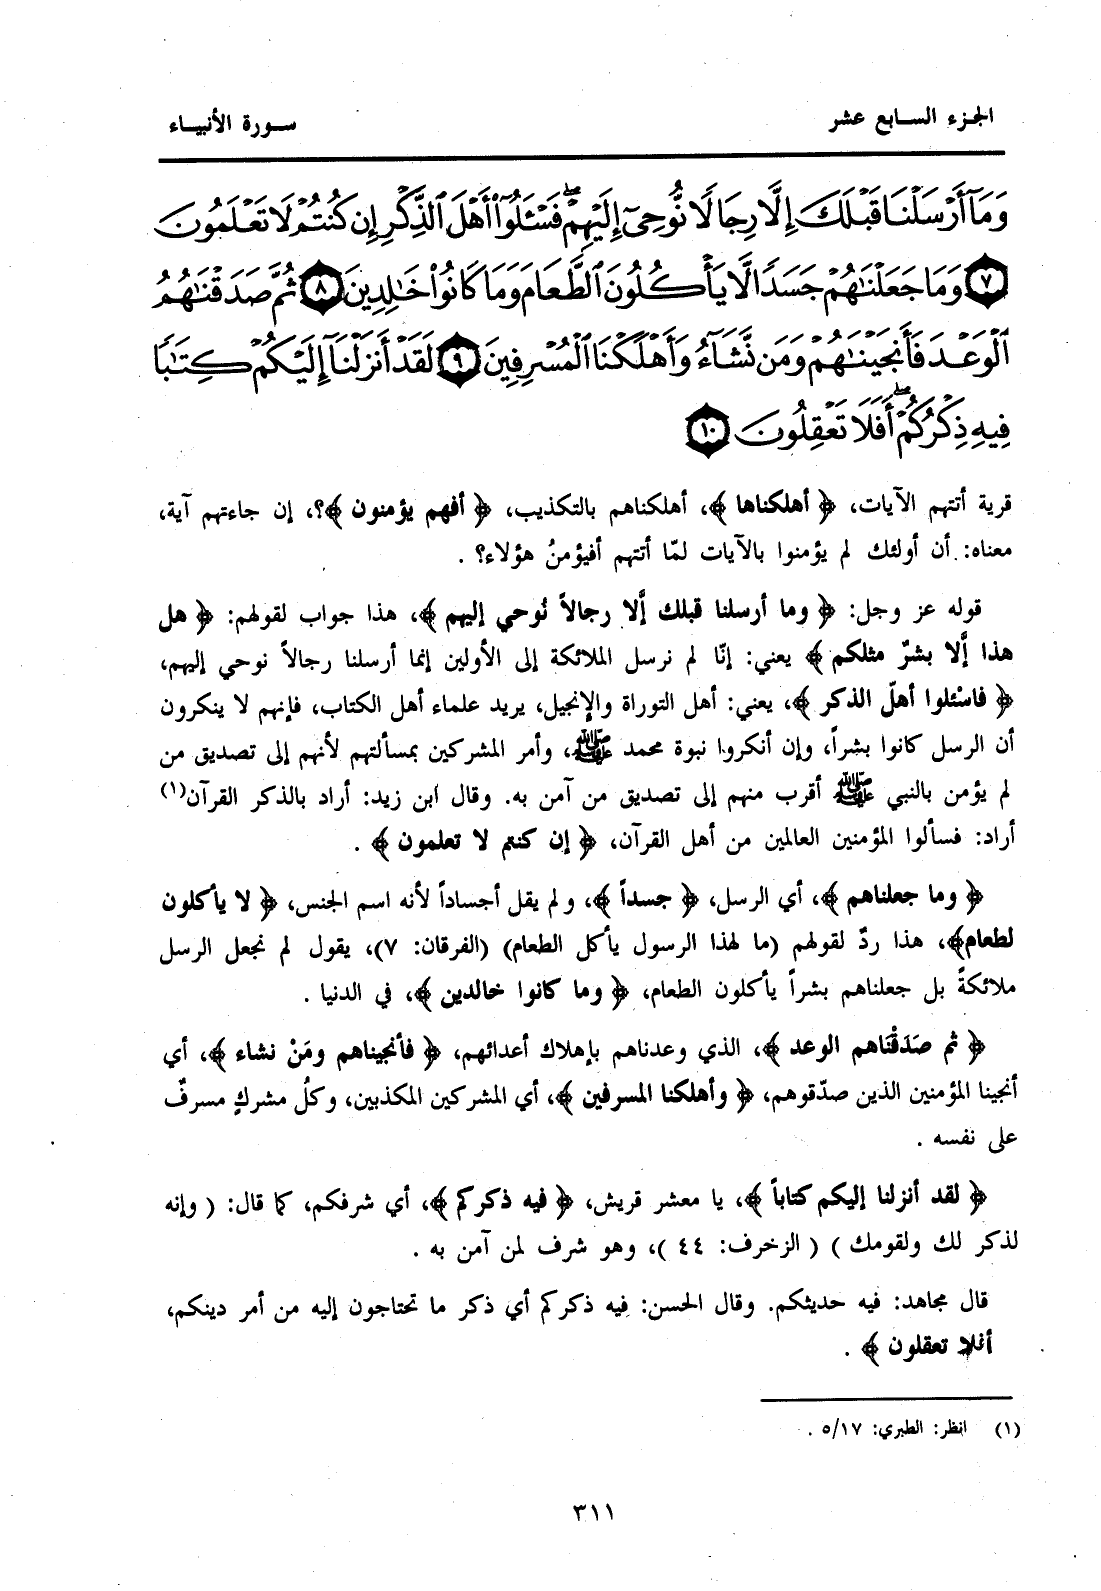 الجزء السابع عشر
سورة الأنبياء
وَمَآ أَرْسَلْنَا قَبْلَكَ إِلَّا رِجَالًا نُّوحِىٓ إِلَيْهِمْ ۖ فَسْـَٔلُوٓا۟ أَهْلَ ٱلذِّكْرِ إِن كُنتُمْ لَا تَعْلَمُونَ
﴿٧﴾ وَمَا جَعَلْنَـٰهُمْ جَسَدًا لَّا يَأْكُلُونَ ٱلطَّعَامَ وَمَا كَانُوا۟ خَـٰلِدِينَ ﴿٨﴾ ثُمَّ صَدَقْنَـٰهُمُ
ٱلْوَعْدَ فَأَنجَيْنَـٰهُمْ وَمَن نَّشَآءُ وَأَهْلَكْنَا ٱلْمُسْرِفِينَ ﴿٩﴾ لَقَدْ أَنزَلْنَآ إِلَيْكُمْ كِتَـٰبًا
فِيهِ ذِكْرُكُمْ ۖ أَفَلَا تَعْقِلُونَ ﴿١٠﴾
قرية أتتهم الآيات، ﴿ أهلكناها ﴾، أهلكناهم بالتكذيب، ﴿ أفهم يؤمنون ﴾؟، إن جاءتهم آية،
معناه: أن أولئك لم يؤمنوا بالآيات لمّا أتتهم أفيؤمنُ هؤلاء؟ .
قوله عز وجل: ﴿ وما أرسلنا قبلك إلّا رجالاً نُوحي إليهم ﴾، هذا جواب لقولهم: ﴿ هل
هذا إلّا بشرٌ مثلكم ﴾ يعني: إنّا لم نرسل الملائكة إلى الأولين إنما أرسلنا رجالاً نوحي إليهم،
﴿ فاسْئلوا أهلَ الذكر ﴾، يعني: أهل التوراة والإنجيل، يريد علماء أهل الكتاب، فإنهم لا ينكرون
أن الرسل كانوا بشراً، وإن أنكروا نبوة محمد ﷺ، وأمر المشركين بمسألتهم لأنهم إلى تصديق من
لم يؤمن بالنبي ﷺ أقرب منهم إلى تصديق من آمن به. وقال ابن زيد: أراد بالذكر القرآن(١)
أراد: فسألوا المؤمنين العالمين من أهل القرآن، ﴿ إن كنتم لا تعلمون ﴾ .
﴿ وما جعلناهم ﴾، أي الرسل، ﴿ جسداً ﴾، ولم يقل أجساداً لأنه اسم الجنس، ﴿ لا يأكلون
لطعام﴾، هذا ردٌ لقولهم (ما لهذا الرسول يأكل الطعام) (الفرقان: ٧)، يقول لم نجعل الرسل
ملائكةً بل جعلناهم بشراً يأكلون الطعام، ﴿ وما كانوا خالدين ﴾، في الدنيا .
﴿ ثم صَدَقْنَاهم الوعد ﴾، الذي وعدناهم بإهلاك أعدائهم، ﴿ فأنجيناهم ومَنْ نشاء ﴾، أي
أنجينا المؤمنين الذين صدّقوهم، ﴿ وأهلكنا المسرفين ﴾، أي المشركين المكذبين، وكلُ مشركٍ مسرفٌ
على نفسه .
﴿ لقد أنزلنا إليكم كتاباً ﴾، يا معشر قريش، ﴿ فيه ذكركم ﴾، أي شرفكم، كما قال: ( وإنه
لذكر لك ولقومك ) ( الزخرف: ٤٤ )، وهو شرف لمن آمن به .
قال مجاهد: فيه حديثكم. وقال الحسن: فيه ذكركم أي ذكر ما تحتاجون إليه من أمر دينكم،
أفلا تعقلون ﴾ .
(١) انظر: الطبري: ٥/١٧ .
٣١١